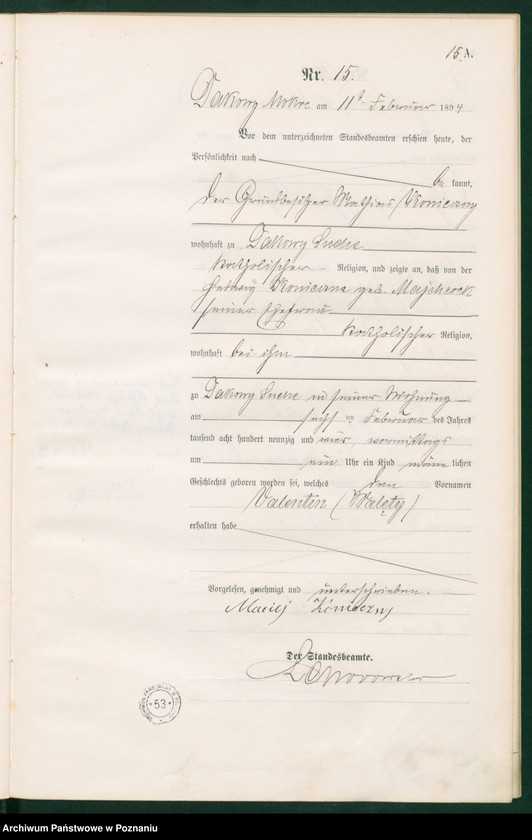 15.A.
Nr. 15.
Dakowy Mokre am 11t Februar 1894
Vor dem unterzeichneten Standesbeamten erschien heute, der
Persönlichkeit nach
be kannt,
der Grundbesitzer Mathias Konieczny
wohnhaft zu Dakowy Suche
katholischer Religion, und zeigte an, daß von der
Hedwig Konieczna geb. Majcherek
seiner Ehefrau
katholischer Religion,
wohnhaft bei ihm
zu Dakowy Suche in seiner Wohnung
am ten Februar des Jahres
tausend acht hundert neunzig und vier, vormittags
um ein Uhr ein Kind männ lichen
Geschlechts geboren worden sei, welches den Vornamen
Valentin (Walęty)
erhalten habe
Vorgelesen, genehmigt und unterschrieben.
Maciej Konieczny
Der Standesbeamte.
53
Archiwum Państwowe w Poznaniu